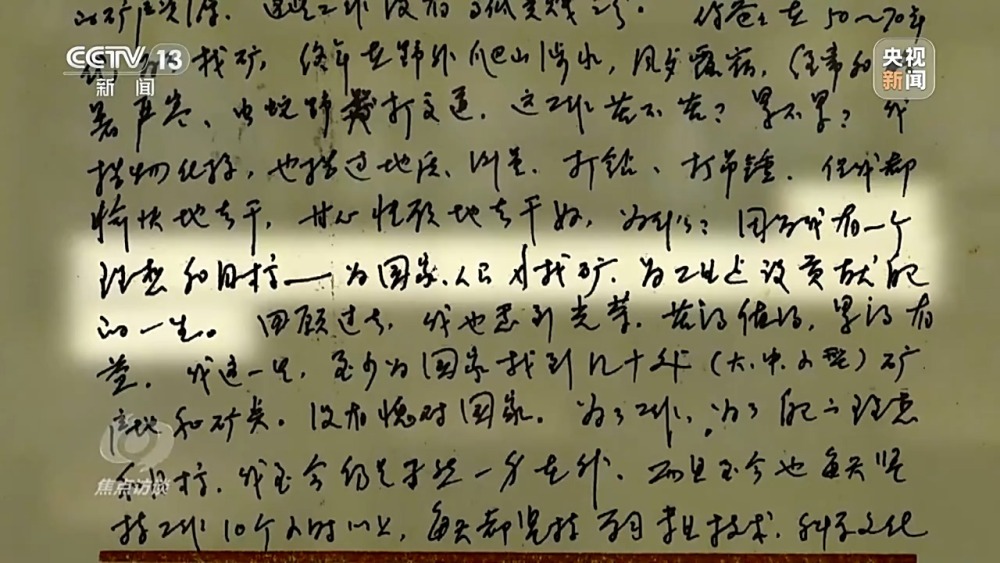 CCTV 13
新闻
央视
新闻
的矿产资源。这些工作没有
你爸爸在50～70年
找矿，终年在野外爬山涉水，风餐露宿，
暑严寒、虫蛇野兽打交道。这工作苦不苦？累不累？我
搞物化探，也搞过地质、测量、打钻、打吊锤。但我都
愉快地去干，甘心情愿地去干的，为什么？因为我有一个
理想和目标——为国家、人民找矿，为工业建设贡献自己
的一生。回顾过去，我也感到光荣。苦得值得，累得有
益。我这一生，至少为国家找到几十处（大、中、小型）矿
产地和矿点。没有愧对国家。为了工作，为了自己的理想
和目标，我至今仍是孑然一身在外，而且至今也每天坚
持工作10个小时以上，每天都坚持学习专业技术、科学文化
焦点访谈